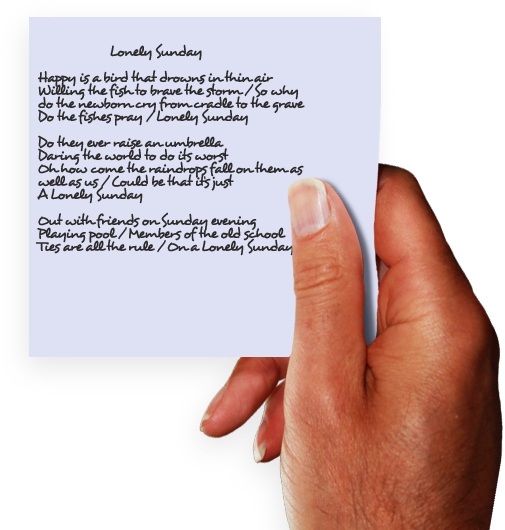 Lonely Sunday
Happy is a bird that drowns in thin air
Willing the fish to brave the storm / So why
do the newborn cry from cradle to the grave
Do the fishes pray / Lonely Sunday
Do they ever raise an umbrella
Daring the world to do its worst
Oh how come the raindrops fall on them as
well as us / Could be that it's just
A Lonely Sunday
Out with friends on Sunday evening
Playing pool / Members of the old school
Ties are all the rule / On a Lonely Sunday